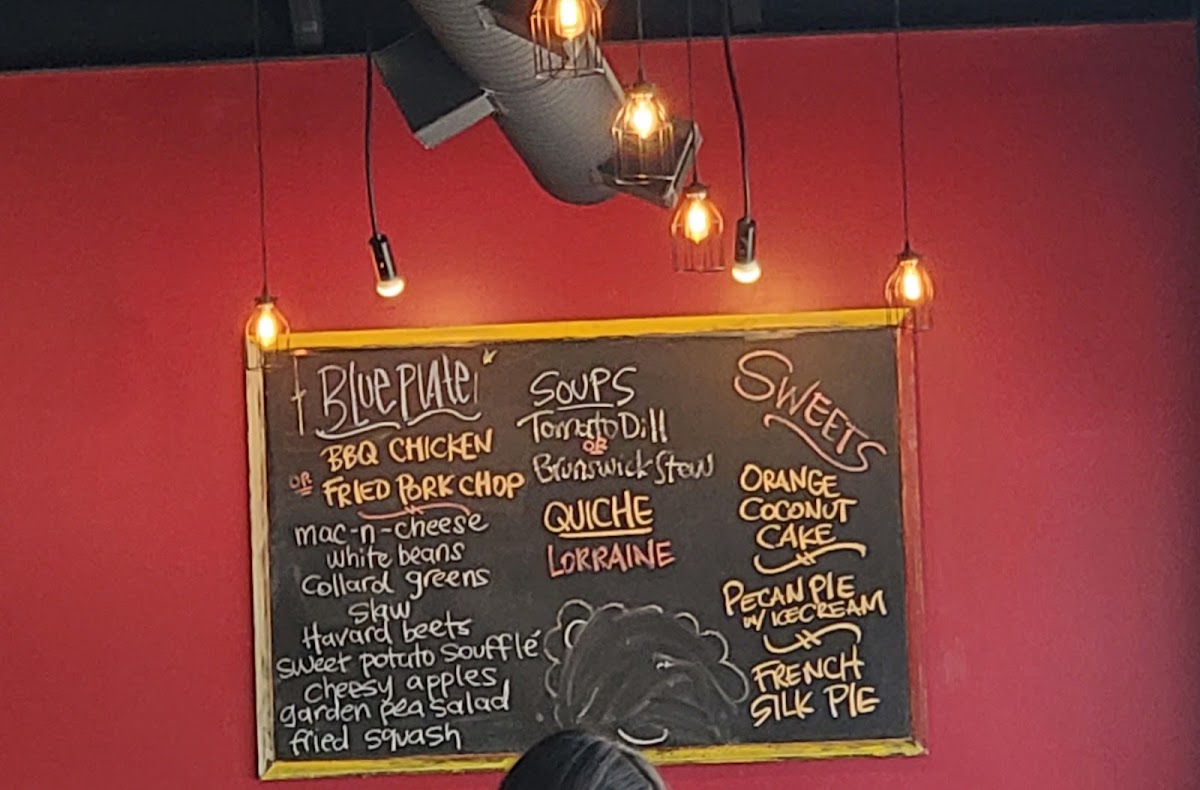 Blue Plate
BBQ CHICKEN
OR
FRIED PORK CHOP
mac-n-cheese
white beans
Collard greens
Slaw
Havard beets
sweet potato soufflé
cheesy apples
garden pea salad
fried squash
SOUPS
Tomato Dill
OR
Brunswick Stew
QUICHE
LORRAINE
SWEETS
ORANGE
COCONUT
CAKE
PECAN PIE
w/ ICECREAM
FRENCH
SILK PIE